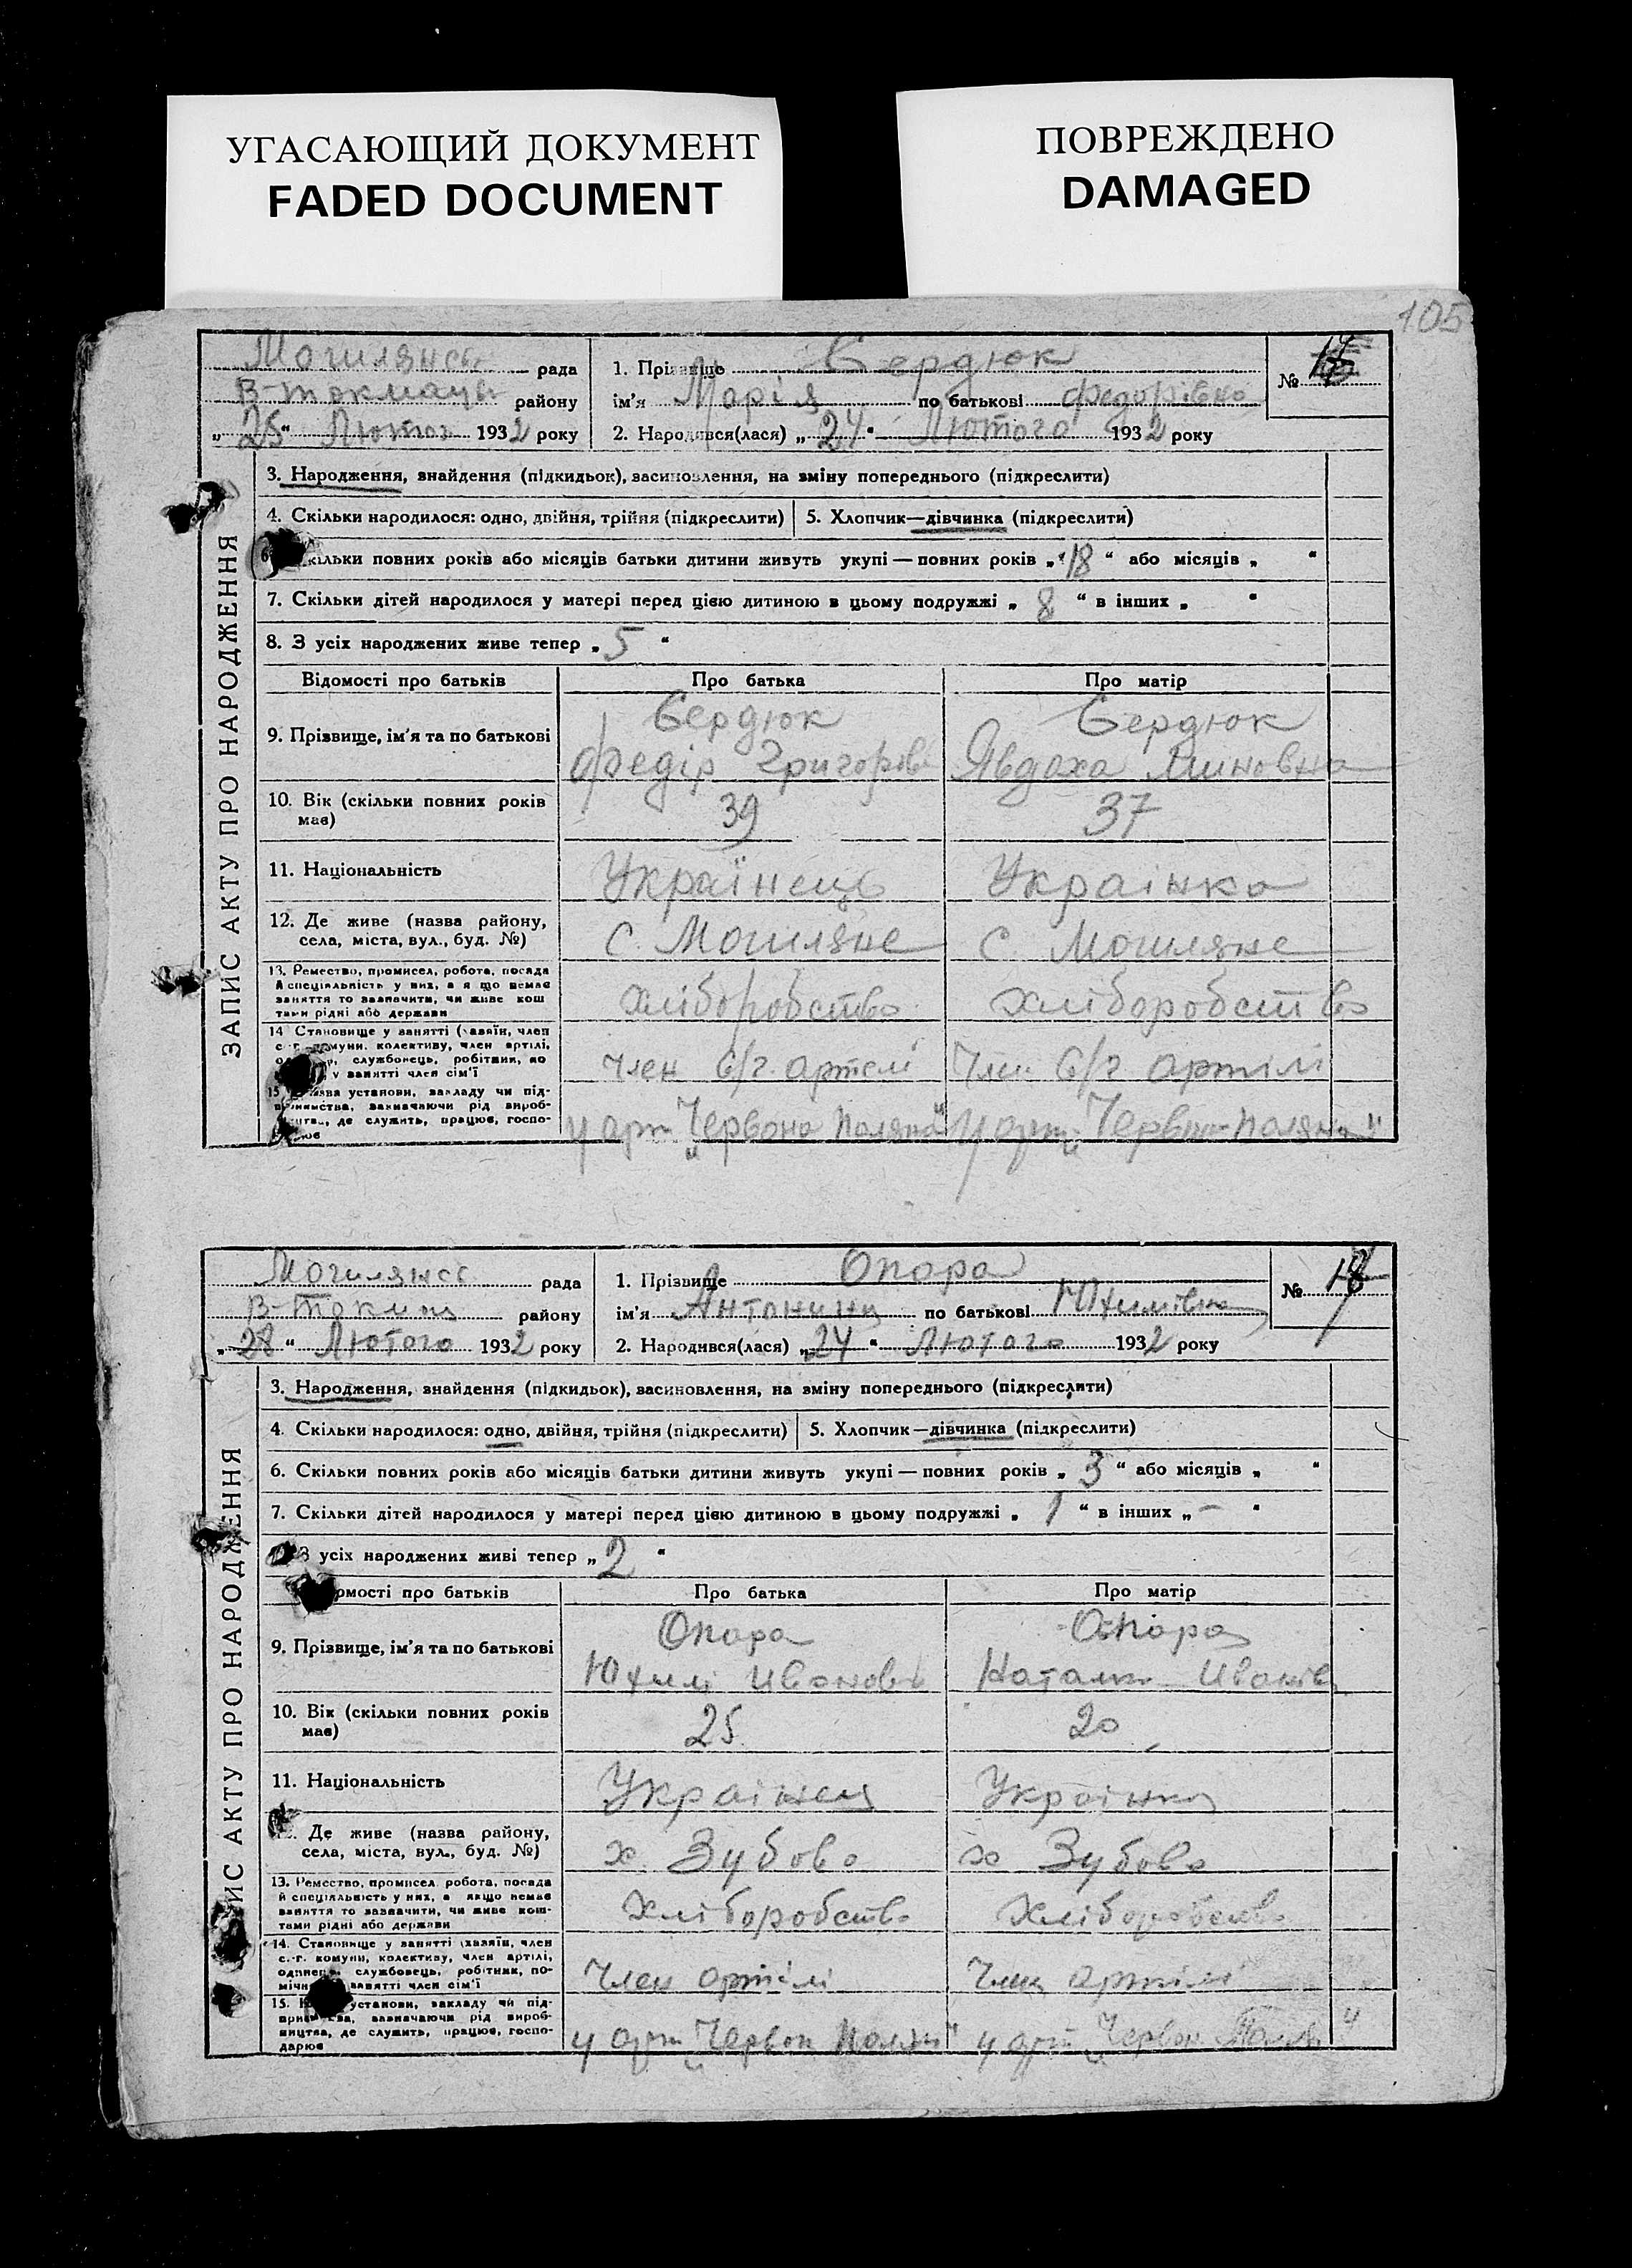 УГАСАЮЩИЙ ДОКУМЕНТ
FADED DOCUMENT
ПОВРЕЖДЕНО
DAMAGED
105
Могилянсь рада
В-Токмаць району
„25“ Лютог 1932 року
1. Прізвище Сердюк
ім'я Марія по батькові Федорівна
2. Народився(лася) „24“ Лютого 1932 року
№
ЗАПИС АКТУ ПРО НАРОДЖЕННЯ
3. Народження, знайдення (підкидьок), засиновлення, на зміну попереднього (підкреслити)
4. Скільки народилося: одно, двійня, трійня (підкреслити)
5. Хлопчик—дівчинка (підкреслити)
кільки повних років або місяців батьки дитини живуть укупі — повних років „18“ або місяців „ “
7. Скільки дітей народилося у матері перед цією дитиною в цьому подружжі „8“ в інших „ “
8. З усіх народжених живе тепер „5“
Відомості про батьків Про батька Про матір
9. Прізвище, ім'я та по батькові
Сердюк Сердюк
Федір Григоров Явдоха Миновна
10. Вік (скільки повних років має)
39 37
11. Національність Українець Українка
12. Де живе (назва району,
села, міста, вул., буд. №)
с. Могиляне с. Могиляне
13. Ремество, промисел, робота, посада
й спеціяльність у них, а я що немає
заняття то зазначити, чи живе кош
тами рідні або держави
хліборобство хліборобство
14 Становище у занятті (хазяїн, член
с.-г. комуни, колективу, член артілі,
службовець, робітник, по
у занятті член сім'ї
Член С/г. артелі Член С/г артілі
15 установи, закладу чи під-
приємства, зазначаючи рід вироб-
ництва, де служить, працює, госпо-
у арт „Червона Поляна“ у арт „Червон Поляна“
Могилянсь рада
В-Токмац району
„28“ Лютого 1932 року
1. Прізвище Опора
ім'я Антонина по батькові Юхимівна
2. Народився(лася) „24“ Лютого 1932 року
№ 18
3. Народження, знайдення (підкидьок), засиновлення, на зміну попереднього (підкреслити)
4. Скільки народилося: одно, двійня, трійня (підкреслити)
5. Хлопчик—дівчинка (підкреслити)
6. Скільки повних років або місяців батьки дитини живуть укупі — повних років „3“ або місяців „ “
7. Скільки дітей народилося у матері перед цією дитиною в цьому подружжі „1“ в інших „–“
З усіх народжених живі тепер „2“
омості про батьків Про батька Про матір
9. Прізвище, ім'я та по батькові
Опора Опора
Юхим Иванов Наталк Иванів
10. Вік (скільки повних років
має)
25 20
11. Національність Украінец Украінка
Де живе (назва району,
села, міста, вул., буд. №)
х Зубово х Зубово
13. Ремество, промисел, робота, посада
й спеціяльність у них, а якщо немає
заняття то зазначити, чи живе кош-
тами рідні або держави
Хліборобство Хліборобство
14. Становище у занятті (хазяїн, член
с.-г. комуни, колективу, член артілі,
службовець, робітник, по-
занятті член сім'ї
Член артілі Член артілі
15. установи, закладу чи під-
приємства, зазначаючи рід вироб-
ництва, де служить, працює, госпо-
дарює
у арт „Червон Поляни“ у арт „Червон Полян“